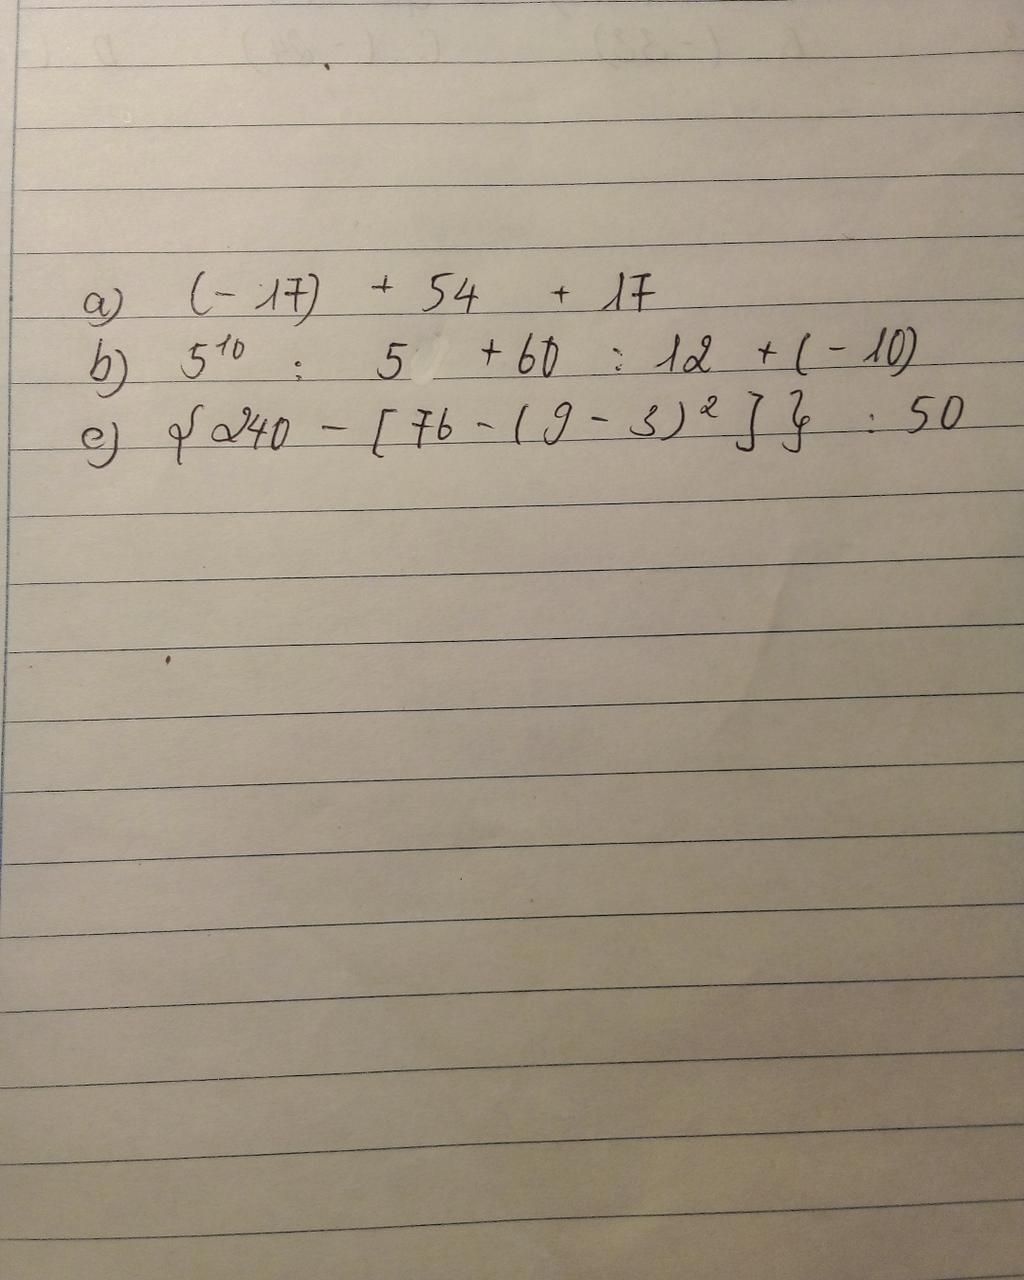 a) (-17) + 54 + 17
b) 5¹⁰ : 5 + 60 : 12 + (-10)
c) {240 - [76 - (9 - 3)²]} : 50